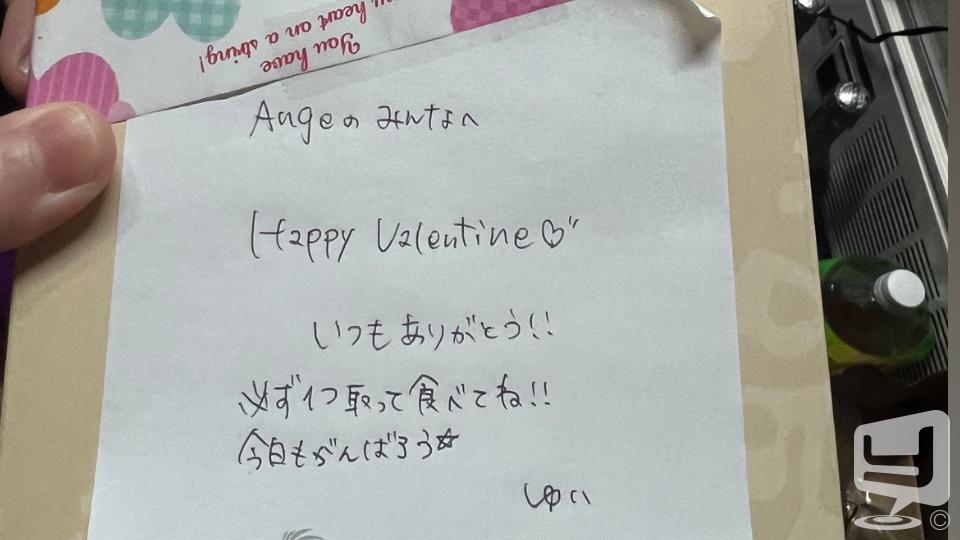 You have
my heart on a string!
Angeのみんなへ
Happy Valentine♡"
いつもありがとう!!
必ず1つ取って食べてね!!
今日もがんばろう☆
しゅい
©